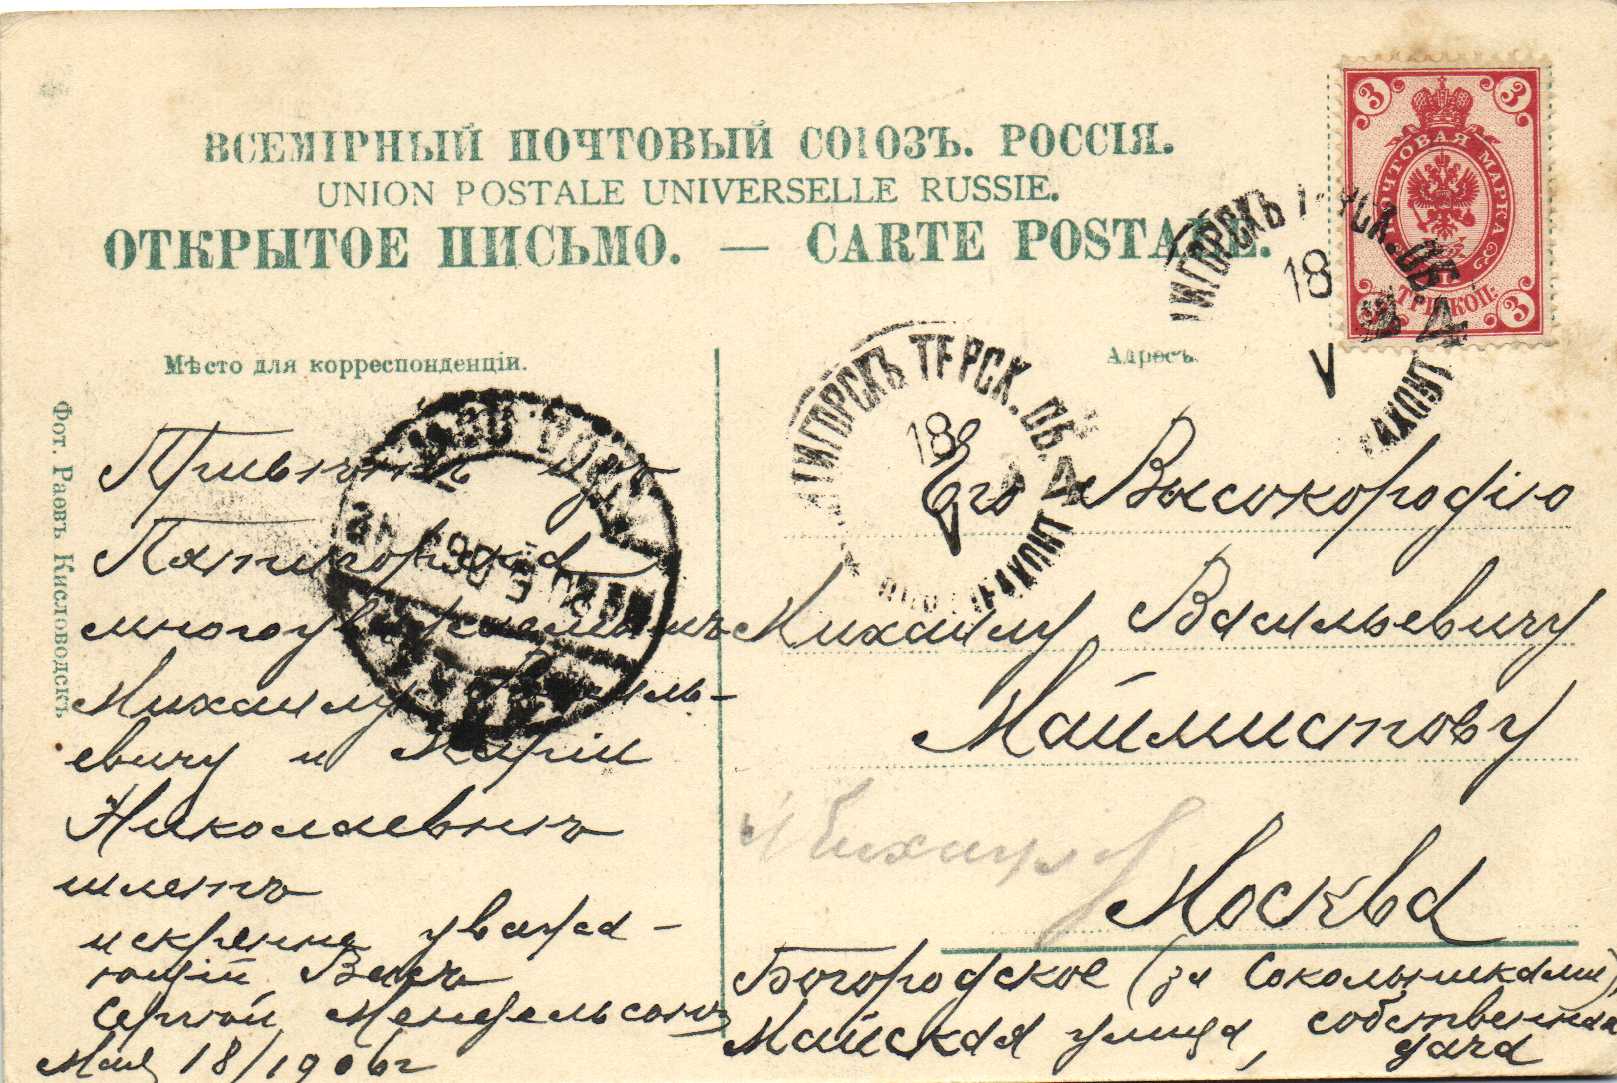 ВСЕМІРНЫЙ ПОЧТОВЫЙ СОЮЗЪ. РОССІЯ.
UNION POSTALE UNIVERSELLE RUSSIE.
ОТКРЫТОЕ ПИСЬМО. — CARTE POSTALE.
3 3
ПОЧТОВАЯ МАРКА
ТРИ КОП:
3 3
ПЯТИГОРСКЪ ТЕРСК. ОБ.
18
V
Мѣсто для корреспонденціи.
Адресъ.
Фот. Раевъ Кисловодскъ
Привѣтъ изъ
Пятигорска
многоуважаемымъ
Михаилу Василь-
евичу и Маріи
Николаевнѣ
шлетъ
искренно уважа-
ющій Васъ
Сергѣй Мендельсонъ
Мая 18/1906 г
ПЯТИГОРСКЪ ТЕРСК. ОБ.
18
V
Его Высокородію
Михаилу Васильевичу
Маймистову
Москва
Богородское (за Сокольниками),
Майская улица, собственная
дача